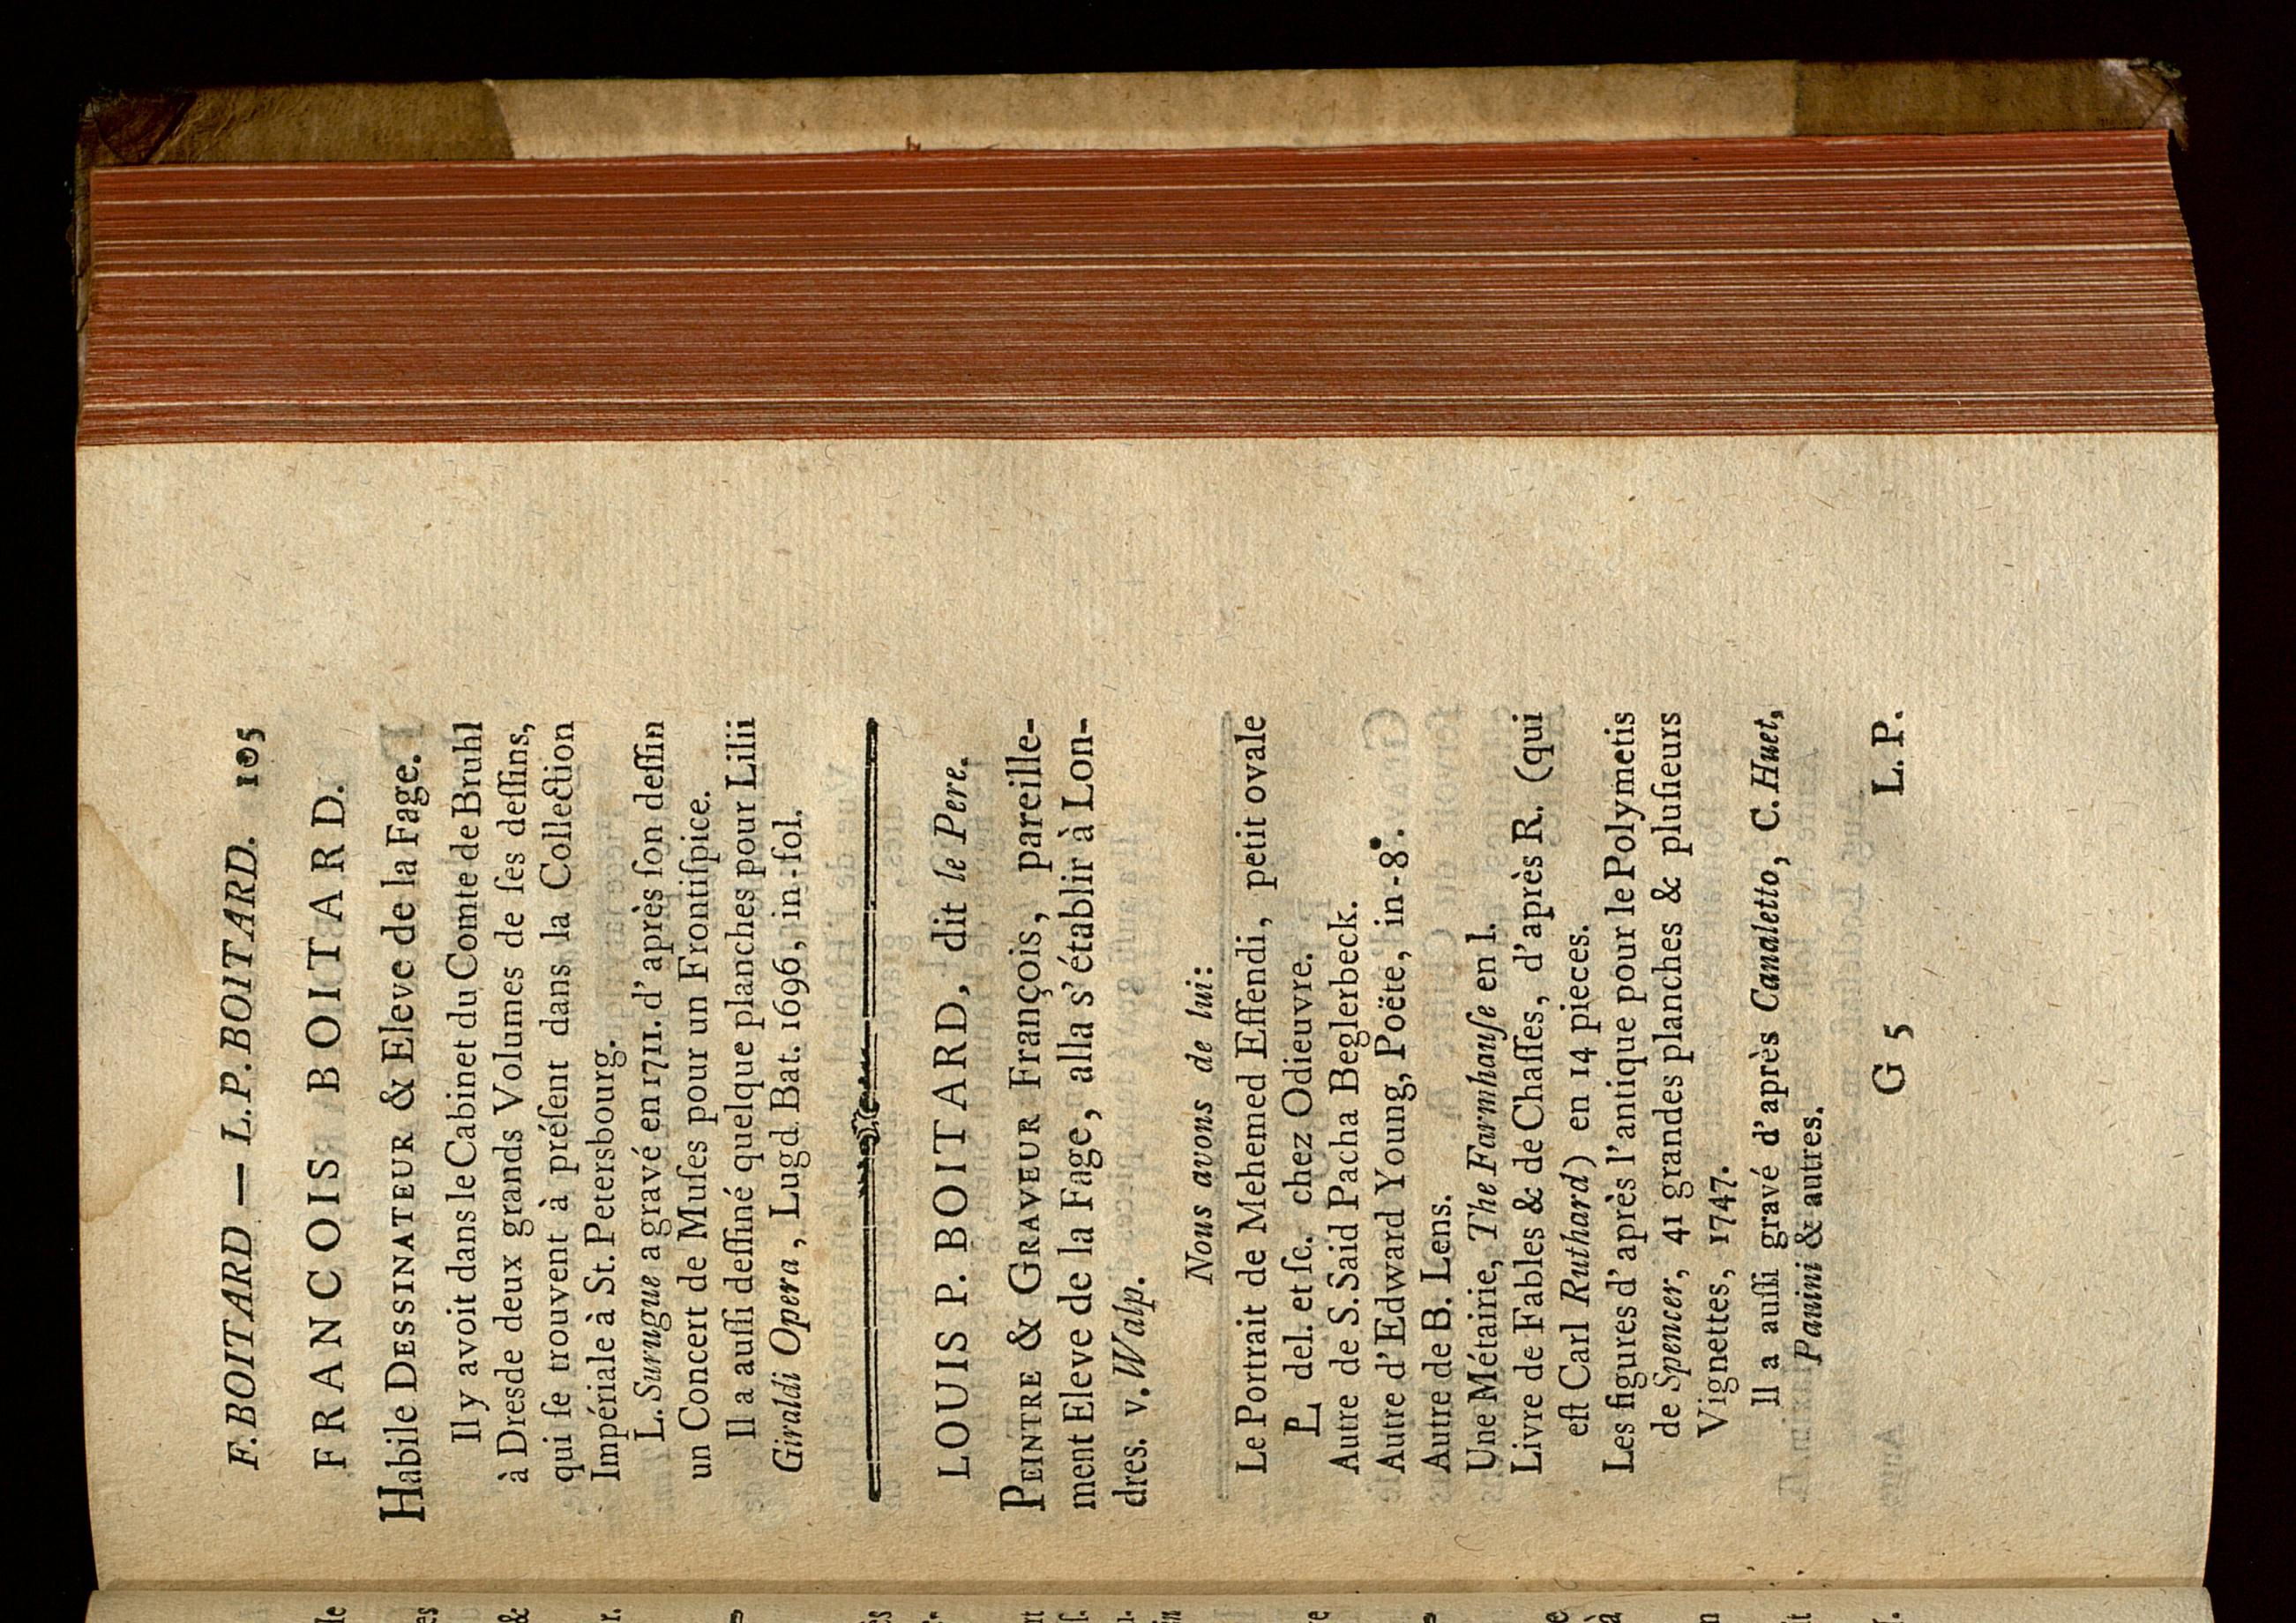 F. BOITARD — L.P. BOITARD. 105
FRANCOIS BOITARD.
Habile DESSINATEUR & Eleve de la Fage.
Il y avoit dans le Cabinet du Comte de Bruhl
à Dresde deux grands Volumes de ſes deſſins,
qui ſe trouvent à préſent dans la Collection
Impériale à St. Petersbourg.
L. Surugue a gravé en 1711. d'après ſon deſſin
un Concert de Muſes pour un Frontiſpice.
Il a auſſi deſſiné quelque planches pour Lilii
Giraldi Opera, Lugd. Bat. 1696, in-fol.
LOUIS P. BOITARD, dit le Pere.
PEINTRE & GRAVEUR François, pareille-
ment Eleve de la Fage, alla s'établir à Lon-
dres. v. Walp.
Nous avons de lui:
Le Portrait de Mehemed Effendi, petit ovale
P. del. et ſc. chez Odieuvre.
Autre de S. Said Pacha Beglerbeck.
Autre d'Edward Young, Poëte, in-8°.
Autre de B. Lens.
Une Métairie, The Farmhauſe en l.
Livre de Fables & de Chaſſes, d'après R. (qui
eſt Carl Ruthard) en 14 pieces.
Les figures d'après l'antique pour le Polymetis
de Spencer, 41 grandes planches & pluſieurs
Vignettes, 1747.
Il a auſſi gravé d'après Canaletto, C. Huet,
Panini & autres.
G 5 L. P.